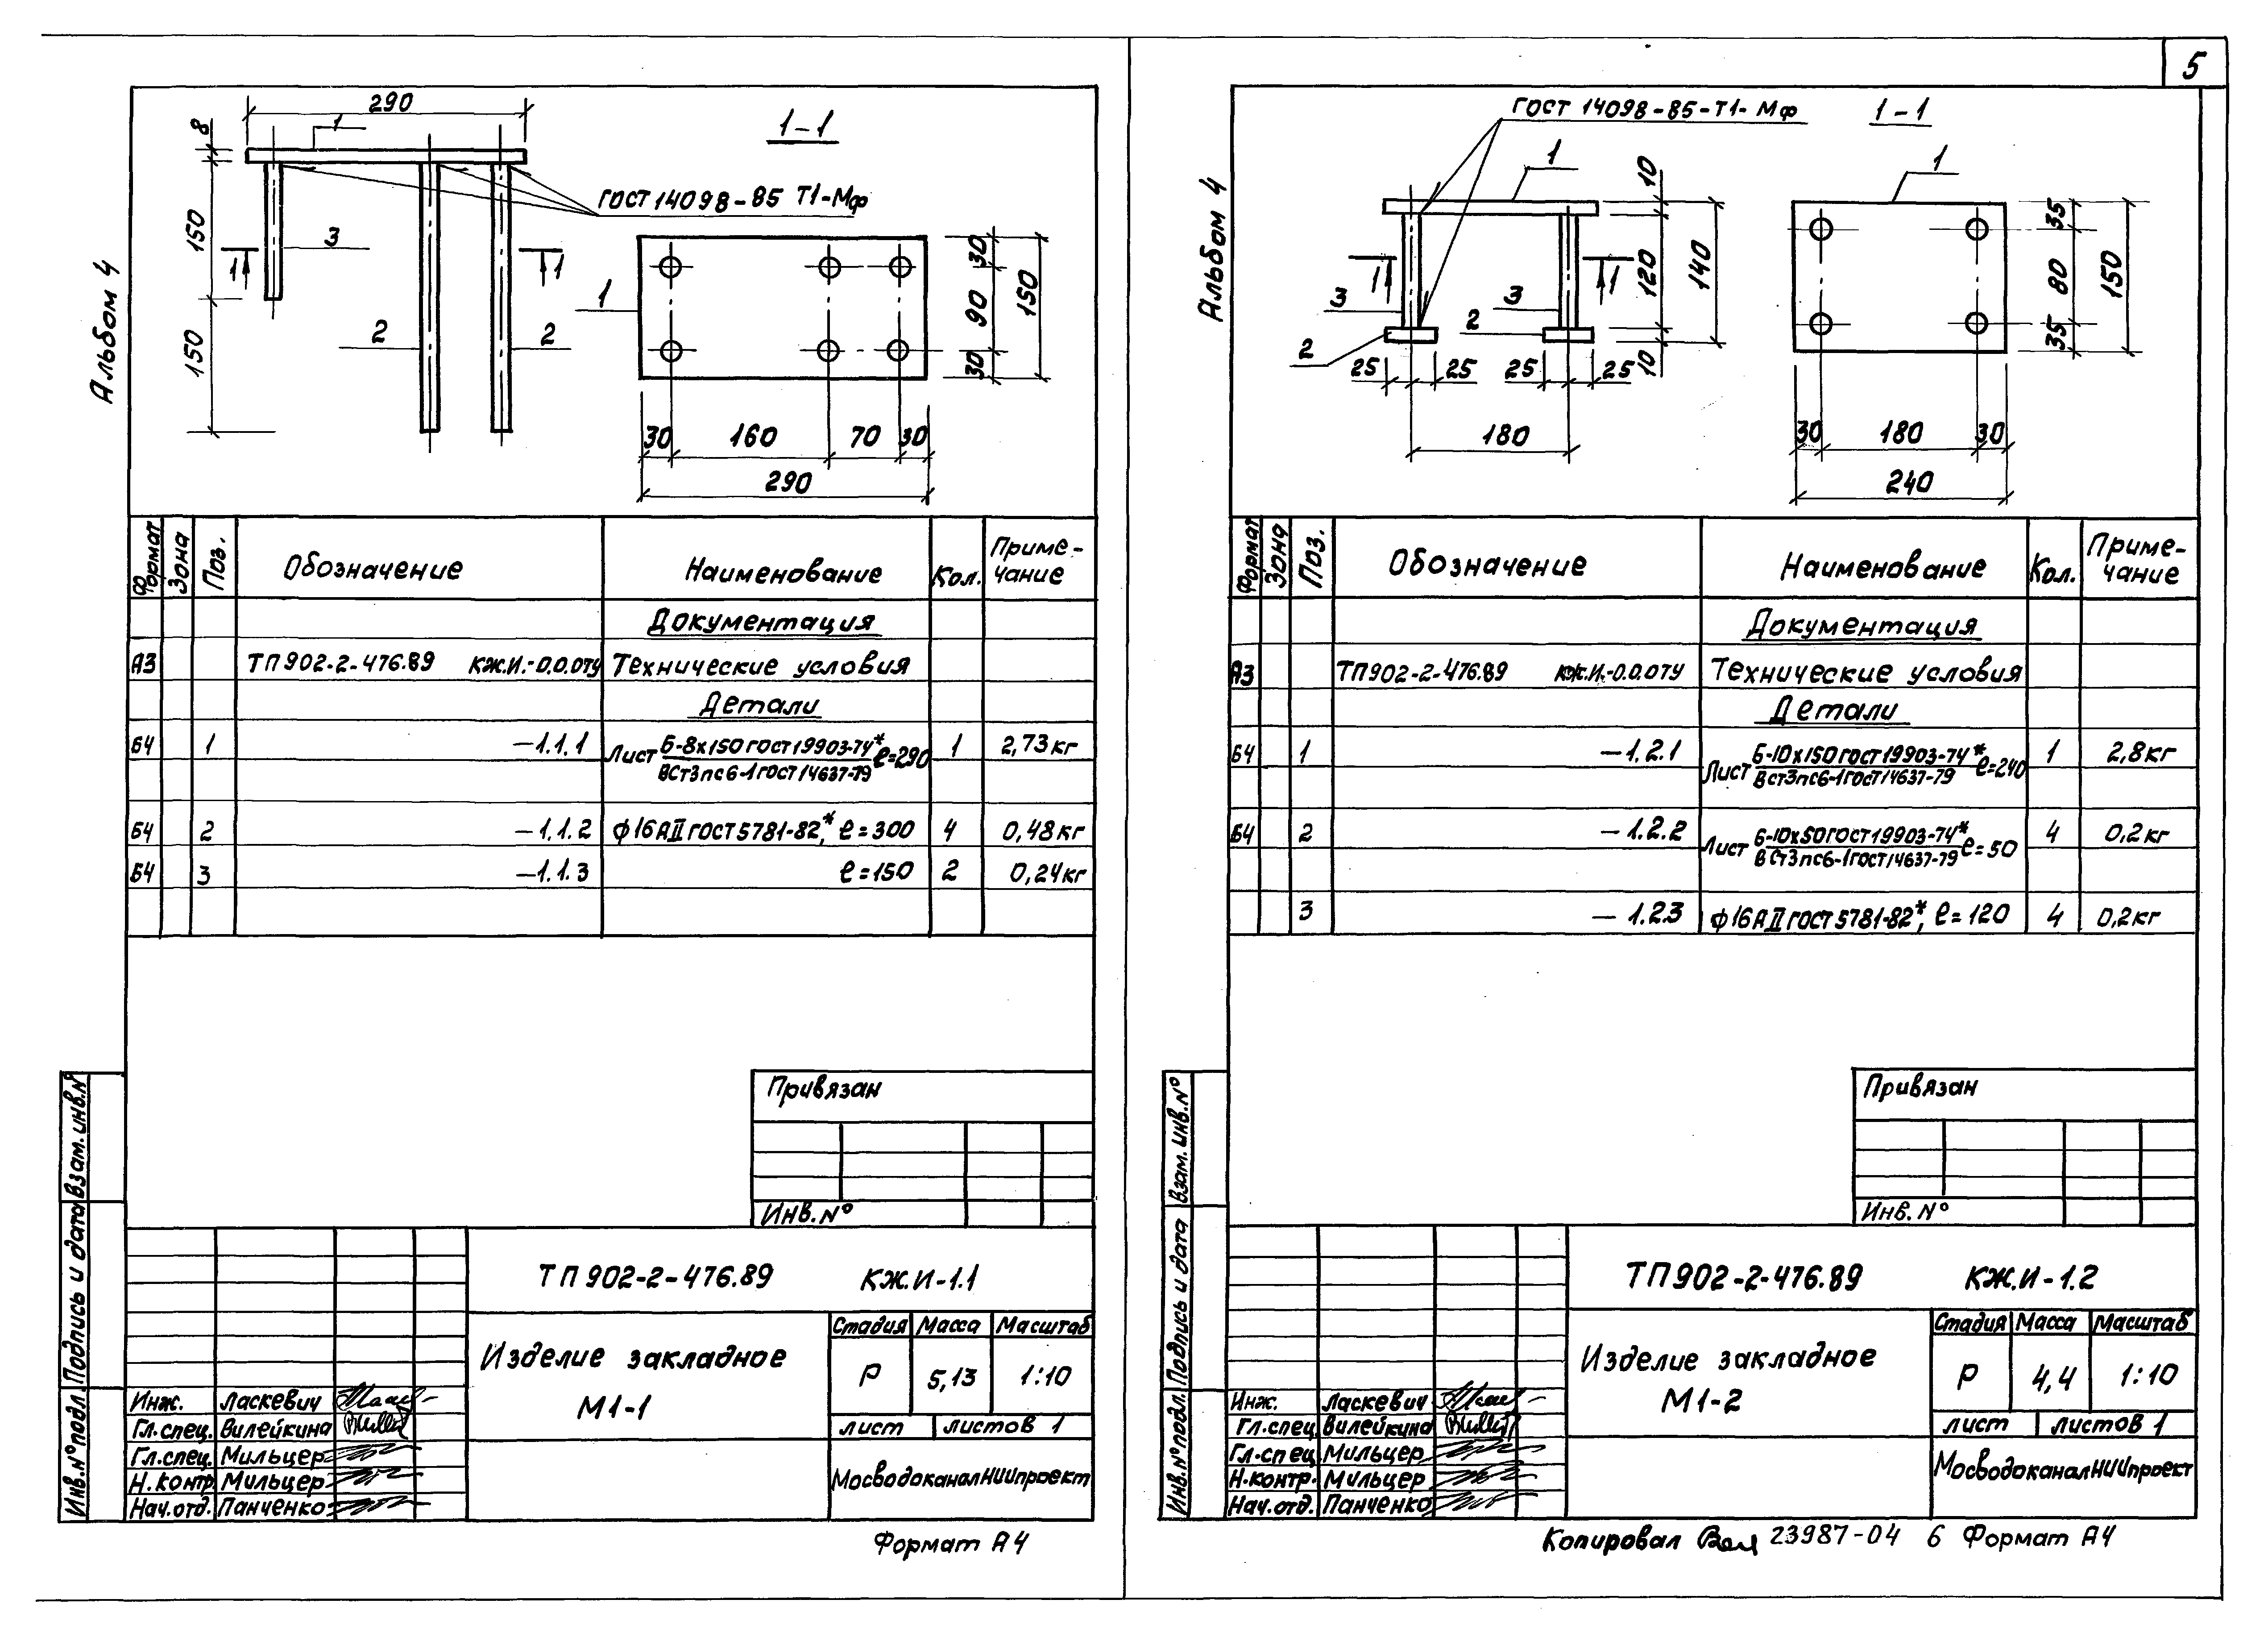 5
Альбом 4
290
1
1-1
8
150
150
3
1
1
2
2
ГОСТ 14098-85 Т1-Мф
1
30
90
30
150
30
160
70
30
290
Формат
Зона
Поз.
Обозначение
Наименование
Кол.
Приме-
чание
Документация
А3 ТП902-2-476.89 КЖ.И.-0.0.0ТУ Технические условия
Детали
Б4 1 —1.1.1 Лист Б-8х150 ГОСТ19903-74* ℓ=290 1 2,73кг
ВСт3пс6-1ГОСТ14637-79
Б4 2 —1.1.2 ф16АII ГОСТ5781-82*, ℓ=300 4 0,48кг
Б4 3 —1.1.3 ℓ=150 2 0,24кг
Привязан
Инв.N°
Взам.инв.N°
Подпись и дата
Инв.N°подл.
ТП902-2-476.89 КЖ.И-1.1
Изделие закладное
М1-1
Стадия Масса Масштаб
Р 5,13 1:10
лист листов 1
МосводоканалНИИпроект
Инж. Ласкевич
Гл.спец. Вилейкина
Гл.спец. Мильцер
Н.контр. Мильцер
Нач.отд. Панченко
Формат А4
Альбом 4
ГОСТ 14098-85-Т1-Мф
1-1
1
1
10
120
10
140
3
3
1
1
2
2
25
25
25
25
180
35
80
35
150
30
180
30
240
Формат
Зона
Поз.
Обозначение
Наименование
Кол.
Приме-
чание
Документация
А3 ТП902-2-476.89 КЖ.И.-0.0.0ТУ Технические условия
Детали
Б4 1 —1.2.1 Лист Б-10х150ГОСТ19903-74* ℓ=240 1 2,8кг
ВСт3пс6-1ГОСТ14637-79
Б4 2 —1.2.2 Лист Б-10х50ГОСТ19903-74* ℓ=50 4 0,2кг
ВСт3пс6-1ГОСТ14637-79
3 —1.2.3 ф16АII ГОСТ5781-82*, ℓ=120 4 0,2кг
Привязан
Инв.N°
Взам.инв.N°
Подпись и дата
Инв.N°подл.
ТП902-2-476.89 КЖ.И-1.2
Изделие закладное
М1-2
Стадия Масса Масштаб
Р 4,4 1:10
лист листов 1
МосводоканалНИИпроект
Инж. Ласкевич
Гл.спец. Вилейкина
Гл.спец. Мильцер
Н.контр. Мильцер
Нач.отд. Панченко
Копировал 23987-04 6 Формат А4